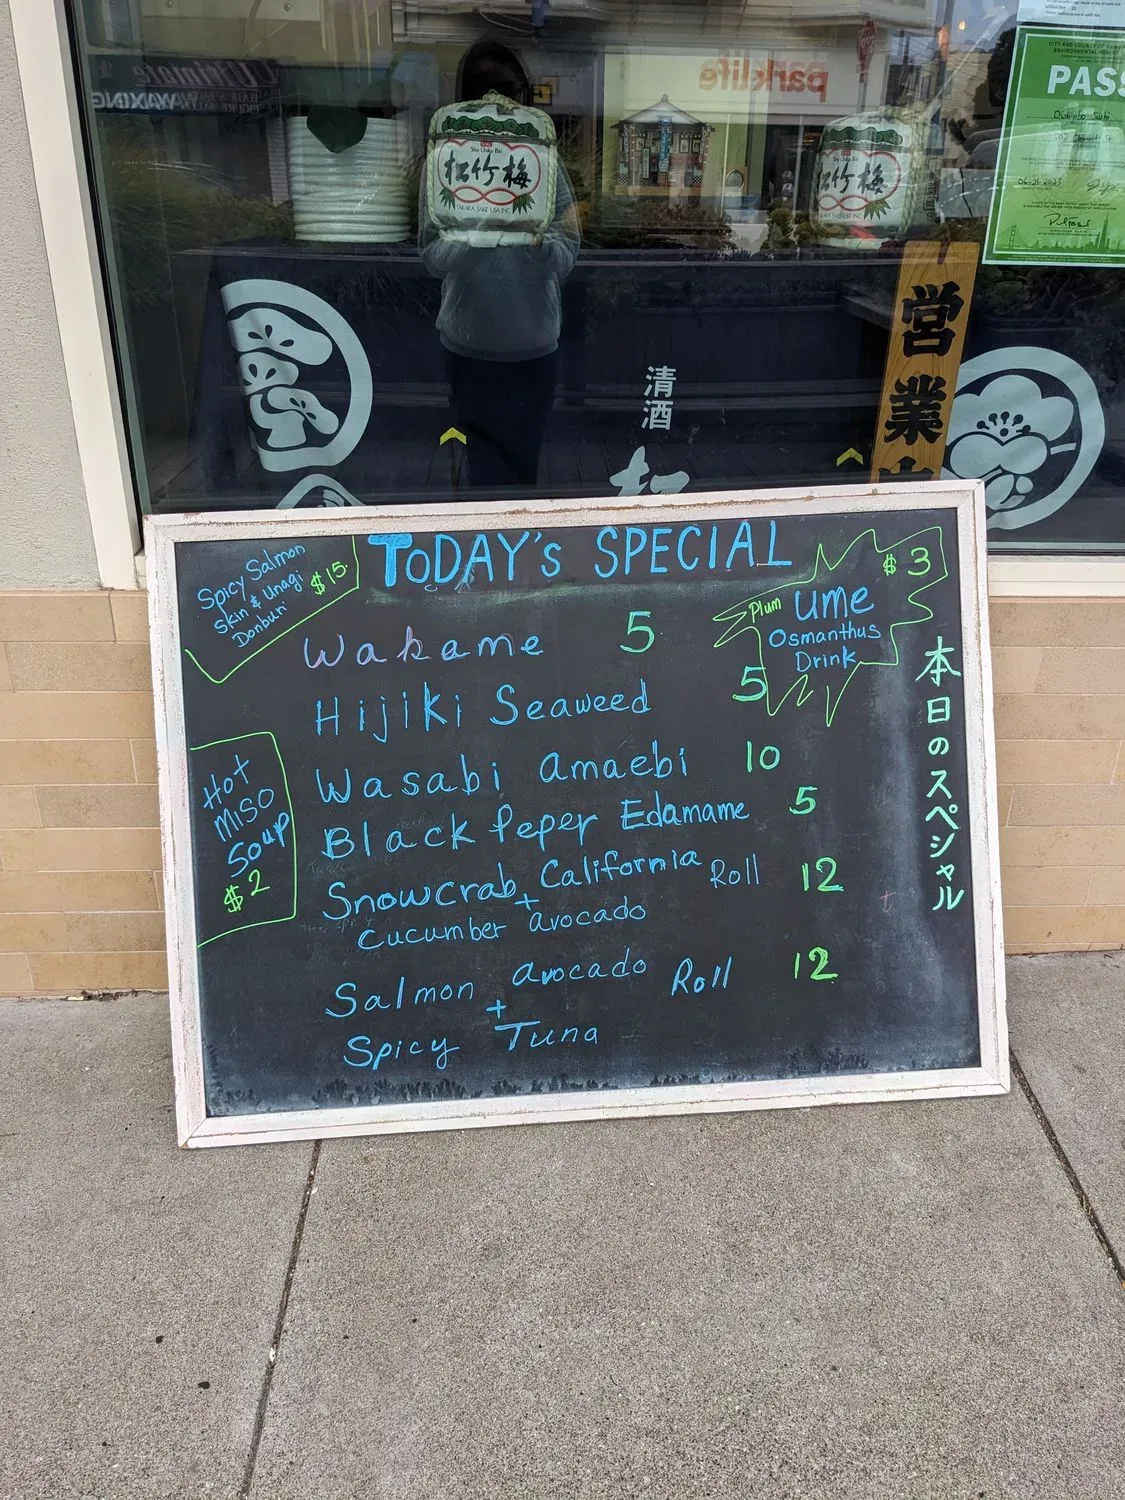 Ultimate
WAXING
parklife
Sho Chiku Bai
松竹梅
TAKARA SAKE USA INC.
松竹梅
CITY AND COUNTY OF SAN
ENVIRONMENTAL HEALTH
PASS
06-21-2023
清酒
松
営業中
TODAY'S SPECIAL
Spicy Salmon
Skin & Unagi $15.
Donburi
$3
Plum Ume
Osmanthus
Drink
Wakame 5
Hijiki Seaweed 5
Wasabi amaebi 10
Black Peper Edamame 5
Snowcrab California Roll 12
+
Cucumber avocado
Salmon avocado Roll 12
+
Spicy Tuna
Hot
Miso
Soup
$2
本日のスペシャル